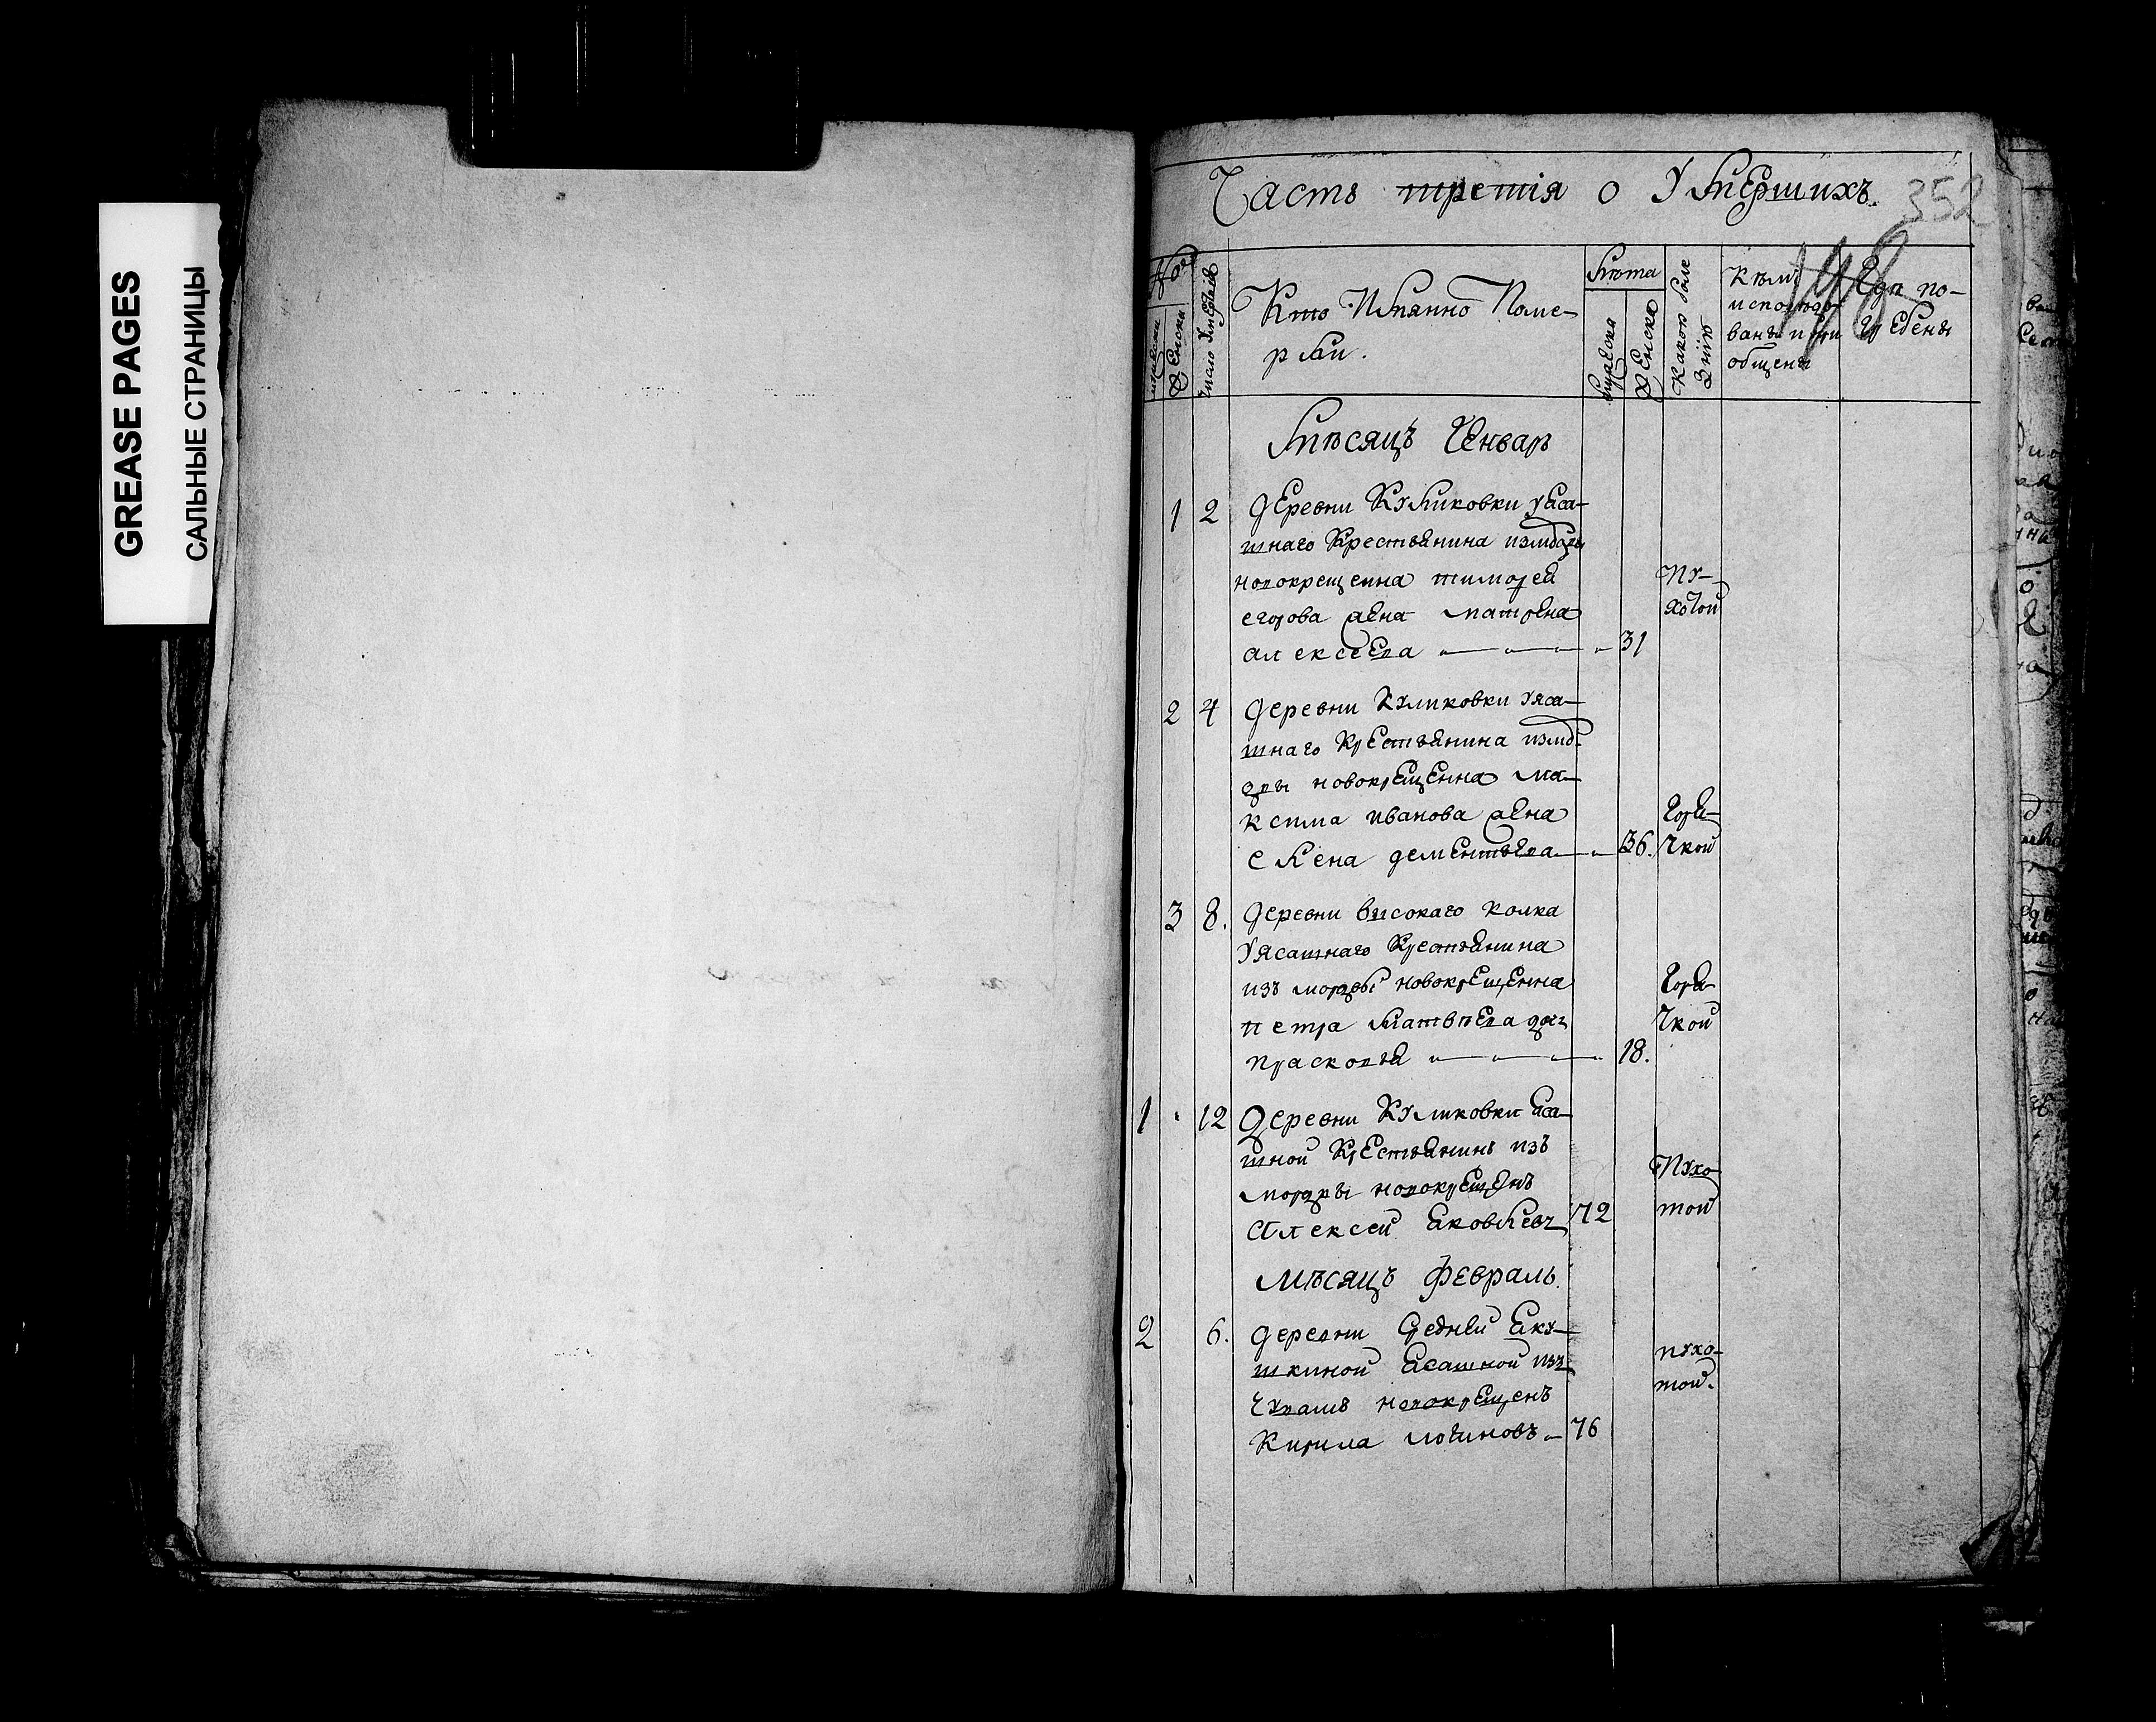 GREASE PAGES
САЛЬНЫЕ СТРАНИЦЫ
Часть третія о Умершихъ.
352
148
№
мужеска
женска
число умертвія
Кто Имянно Поме-
рли.
Лѣта
мужеска
женска
Какою боле
знію
Кѣмъ
исповѣдо
ванъ и при
общенъ
Гдѣ по-
гребенъ
Мѣсяцъ Генварь
1 2 деревни Куликовки уяса-
шнаго крестьянина измордвы
новокрещенна тимофея
егорова жена матрена
алексеева 31
пу-
хотой
2 4 деревни Куликовки уяса-
шнаго крестьянина измор-
двы новокрещенна ма-
ксима иванова жена
елена дементьева 36.
горя-
чкой
3 8. деревни высокаго колка
уясашнаго крестьянина
изъ мордвы новокрещенна
петра матвѣева дочь
прасковья 18.
горя-
чкой
1 12 деревни Куликовки яса-
шной крестьянинъ изъ
мордвы новокрещенъ
Алексей яковлевъ 72
пухо
той
мѣсяцъ февраль
2 6. деревни Средней яку-
шкиной ясашной изъ
чувашъ новокрещенъ
Кирила логиновъ 76
пухо-
той.